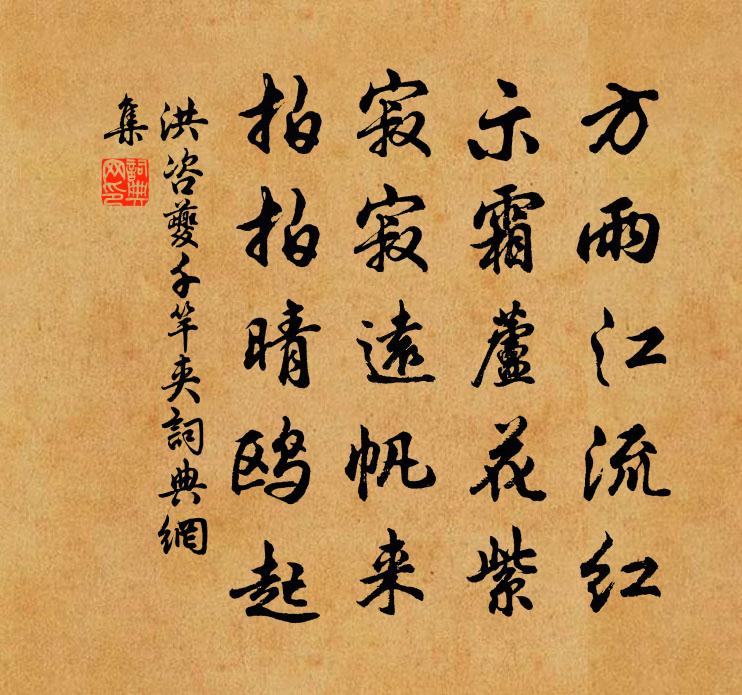 方雨江流红
示霜蘆花紫
寂寂遠帆来
拍拍晴鸥起
洪咨夔千竿夾詞典網
集
詞典網印